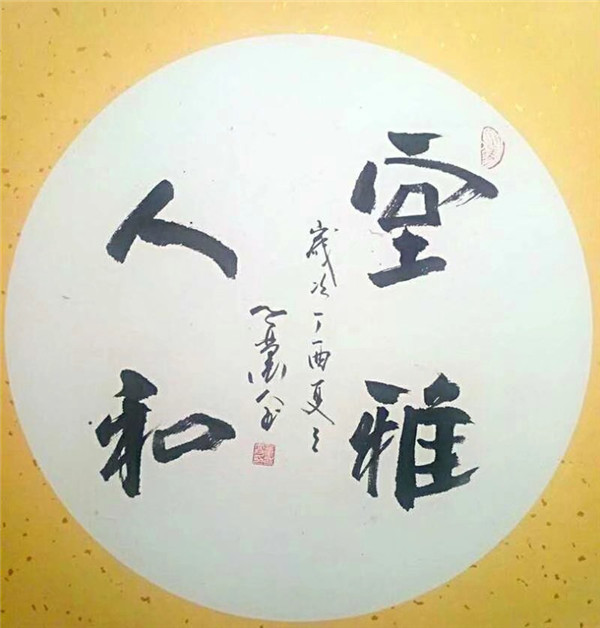 堂雅
人和
歲次丁酉夏之